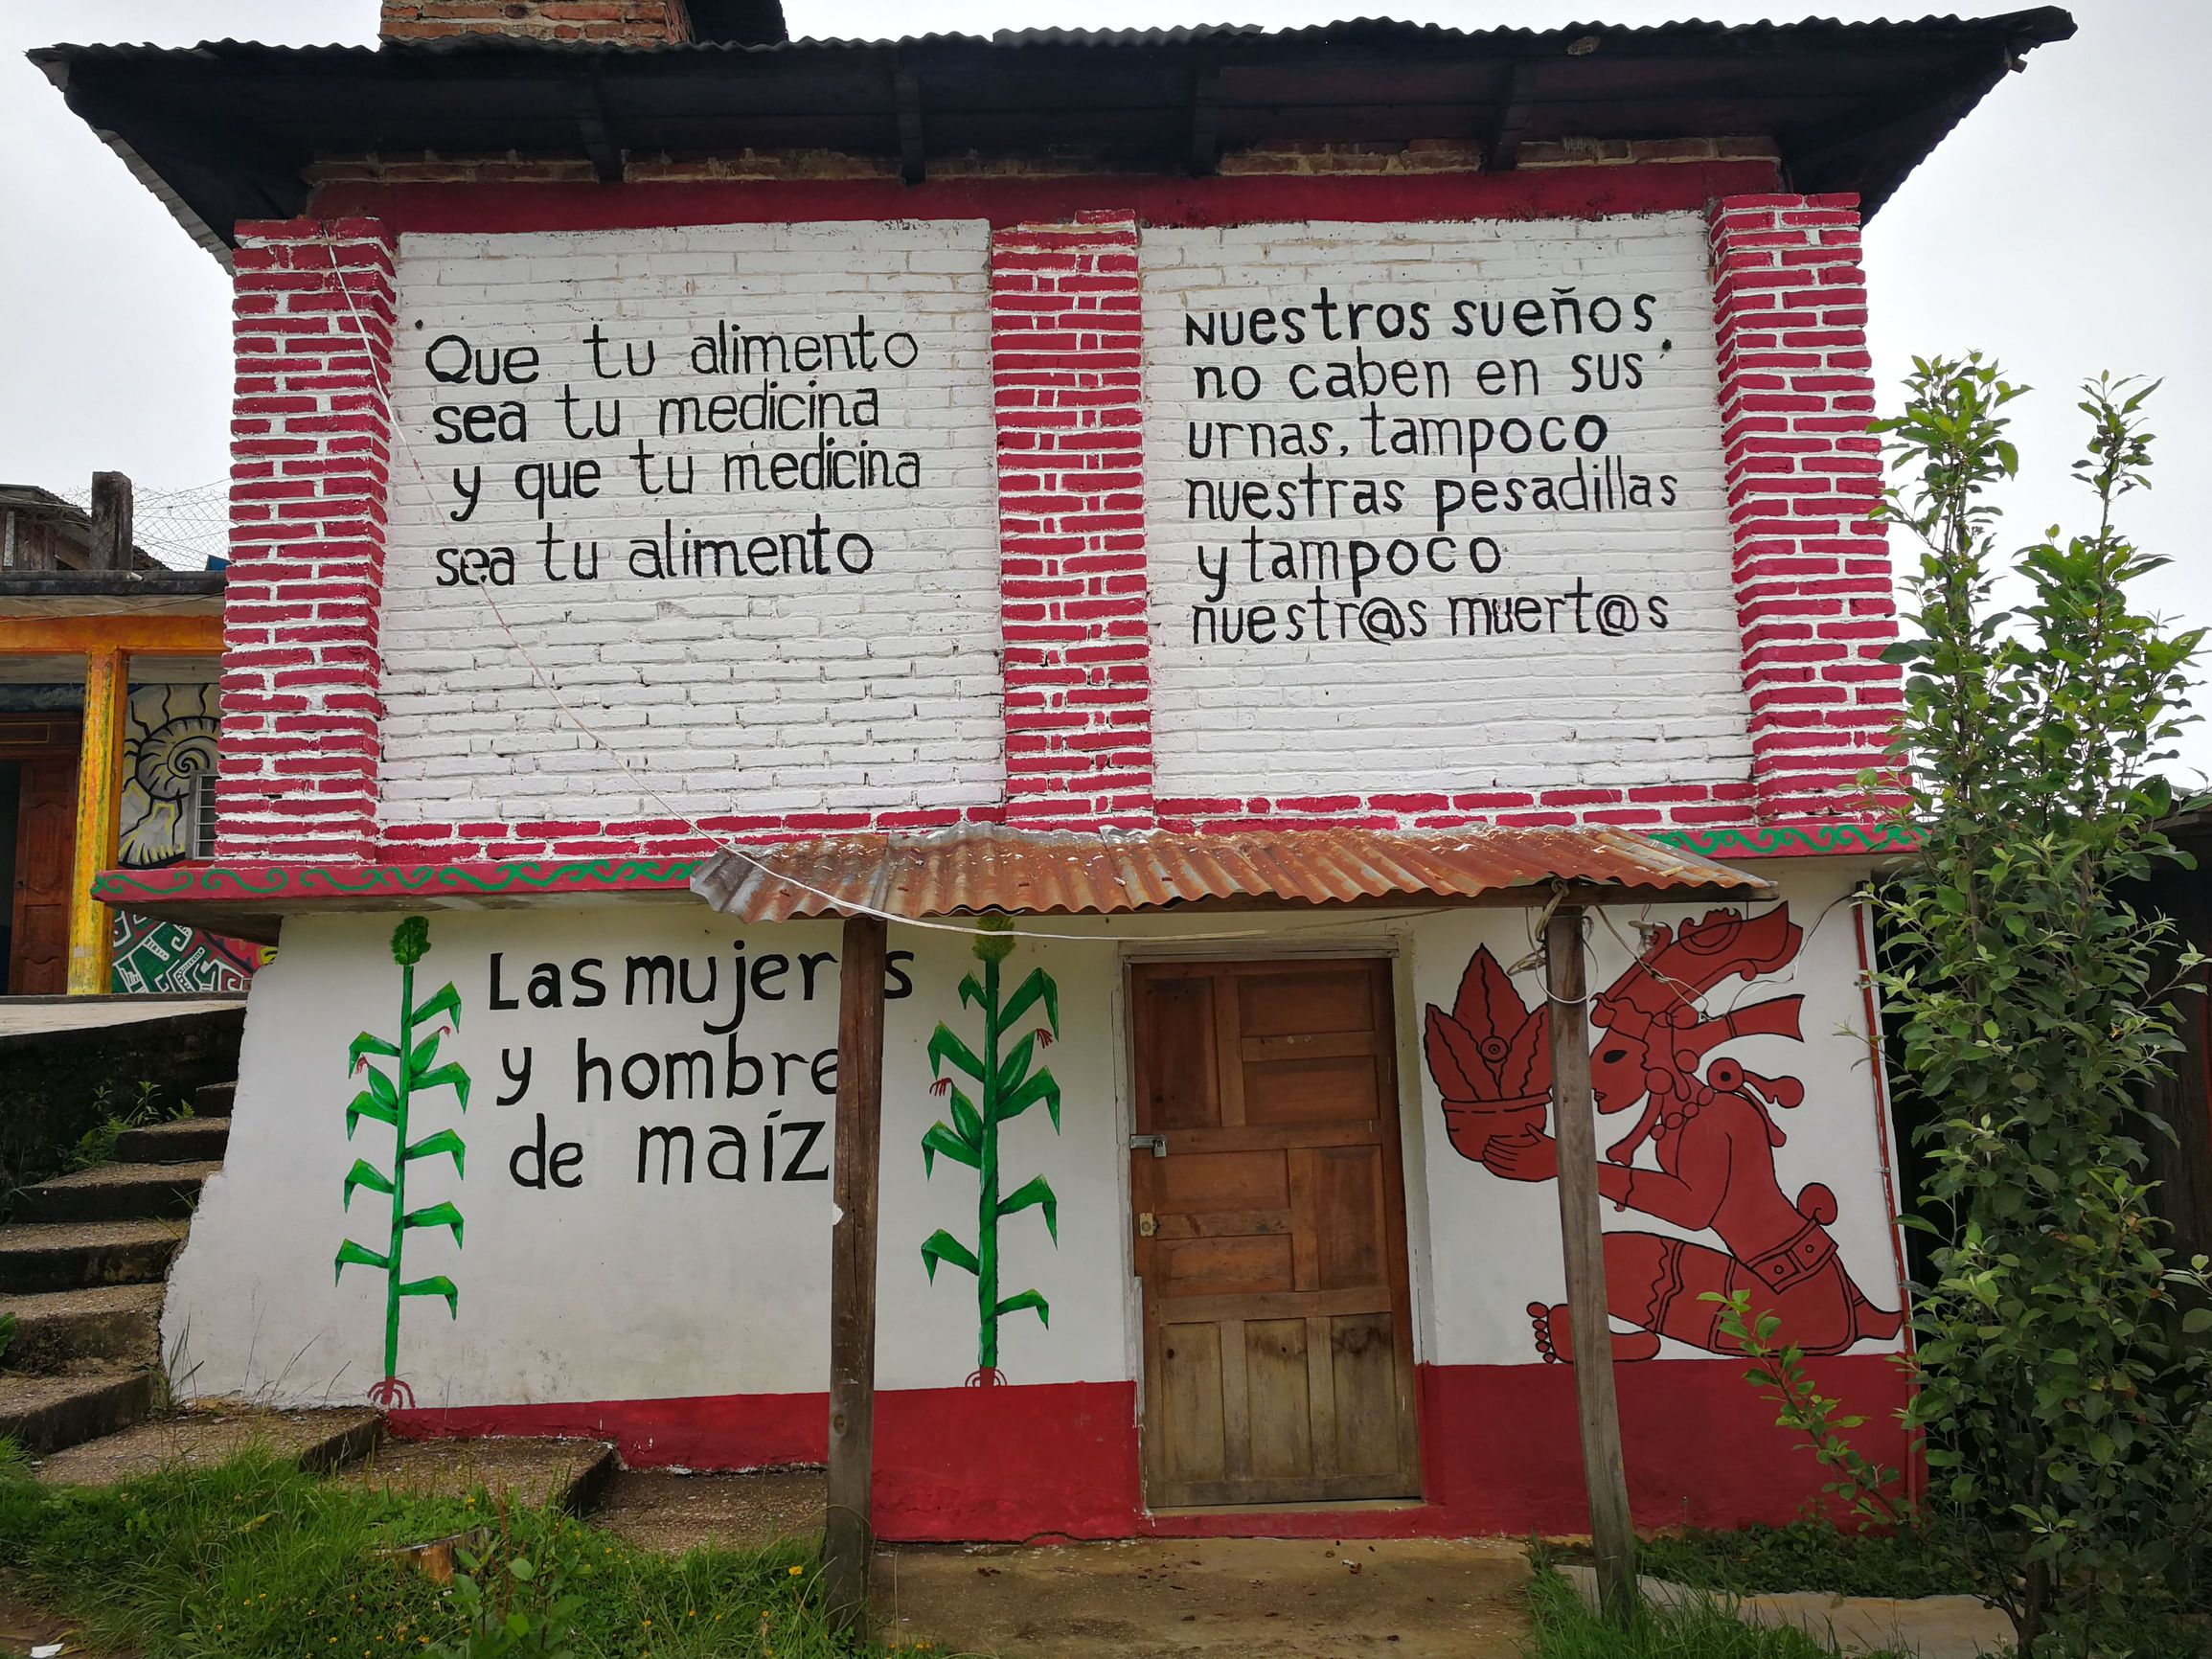 Que tu alimento
sea tu medicina
y que tu medicina
sea tu alimento
Nuestros sueños
no caben en sus
urnas, tampoco
nuestras pesadillas
y tampoco
nuestr@s muert@s
Las mujeres
y hombre
de maíz